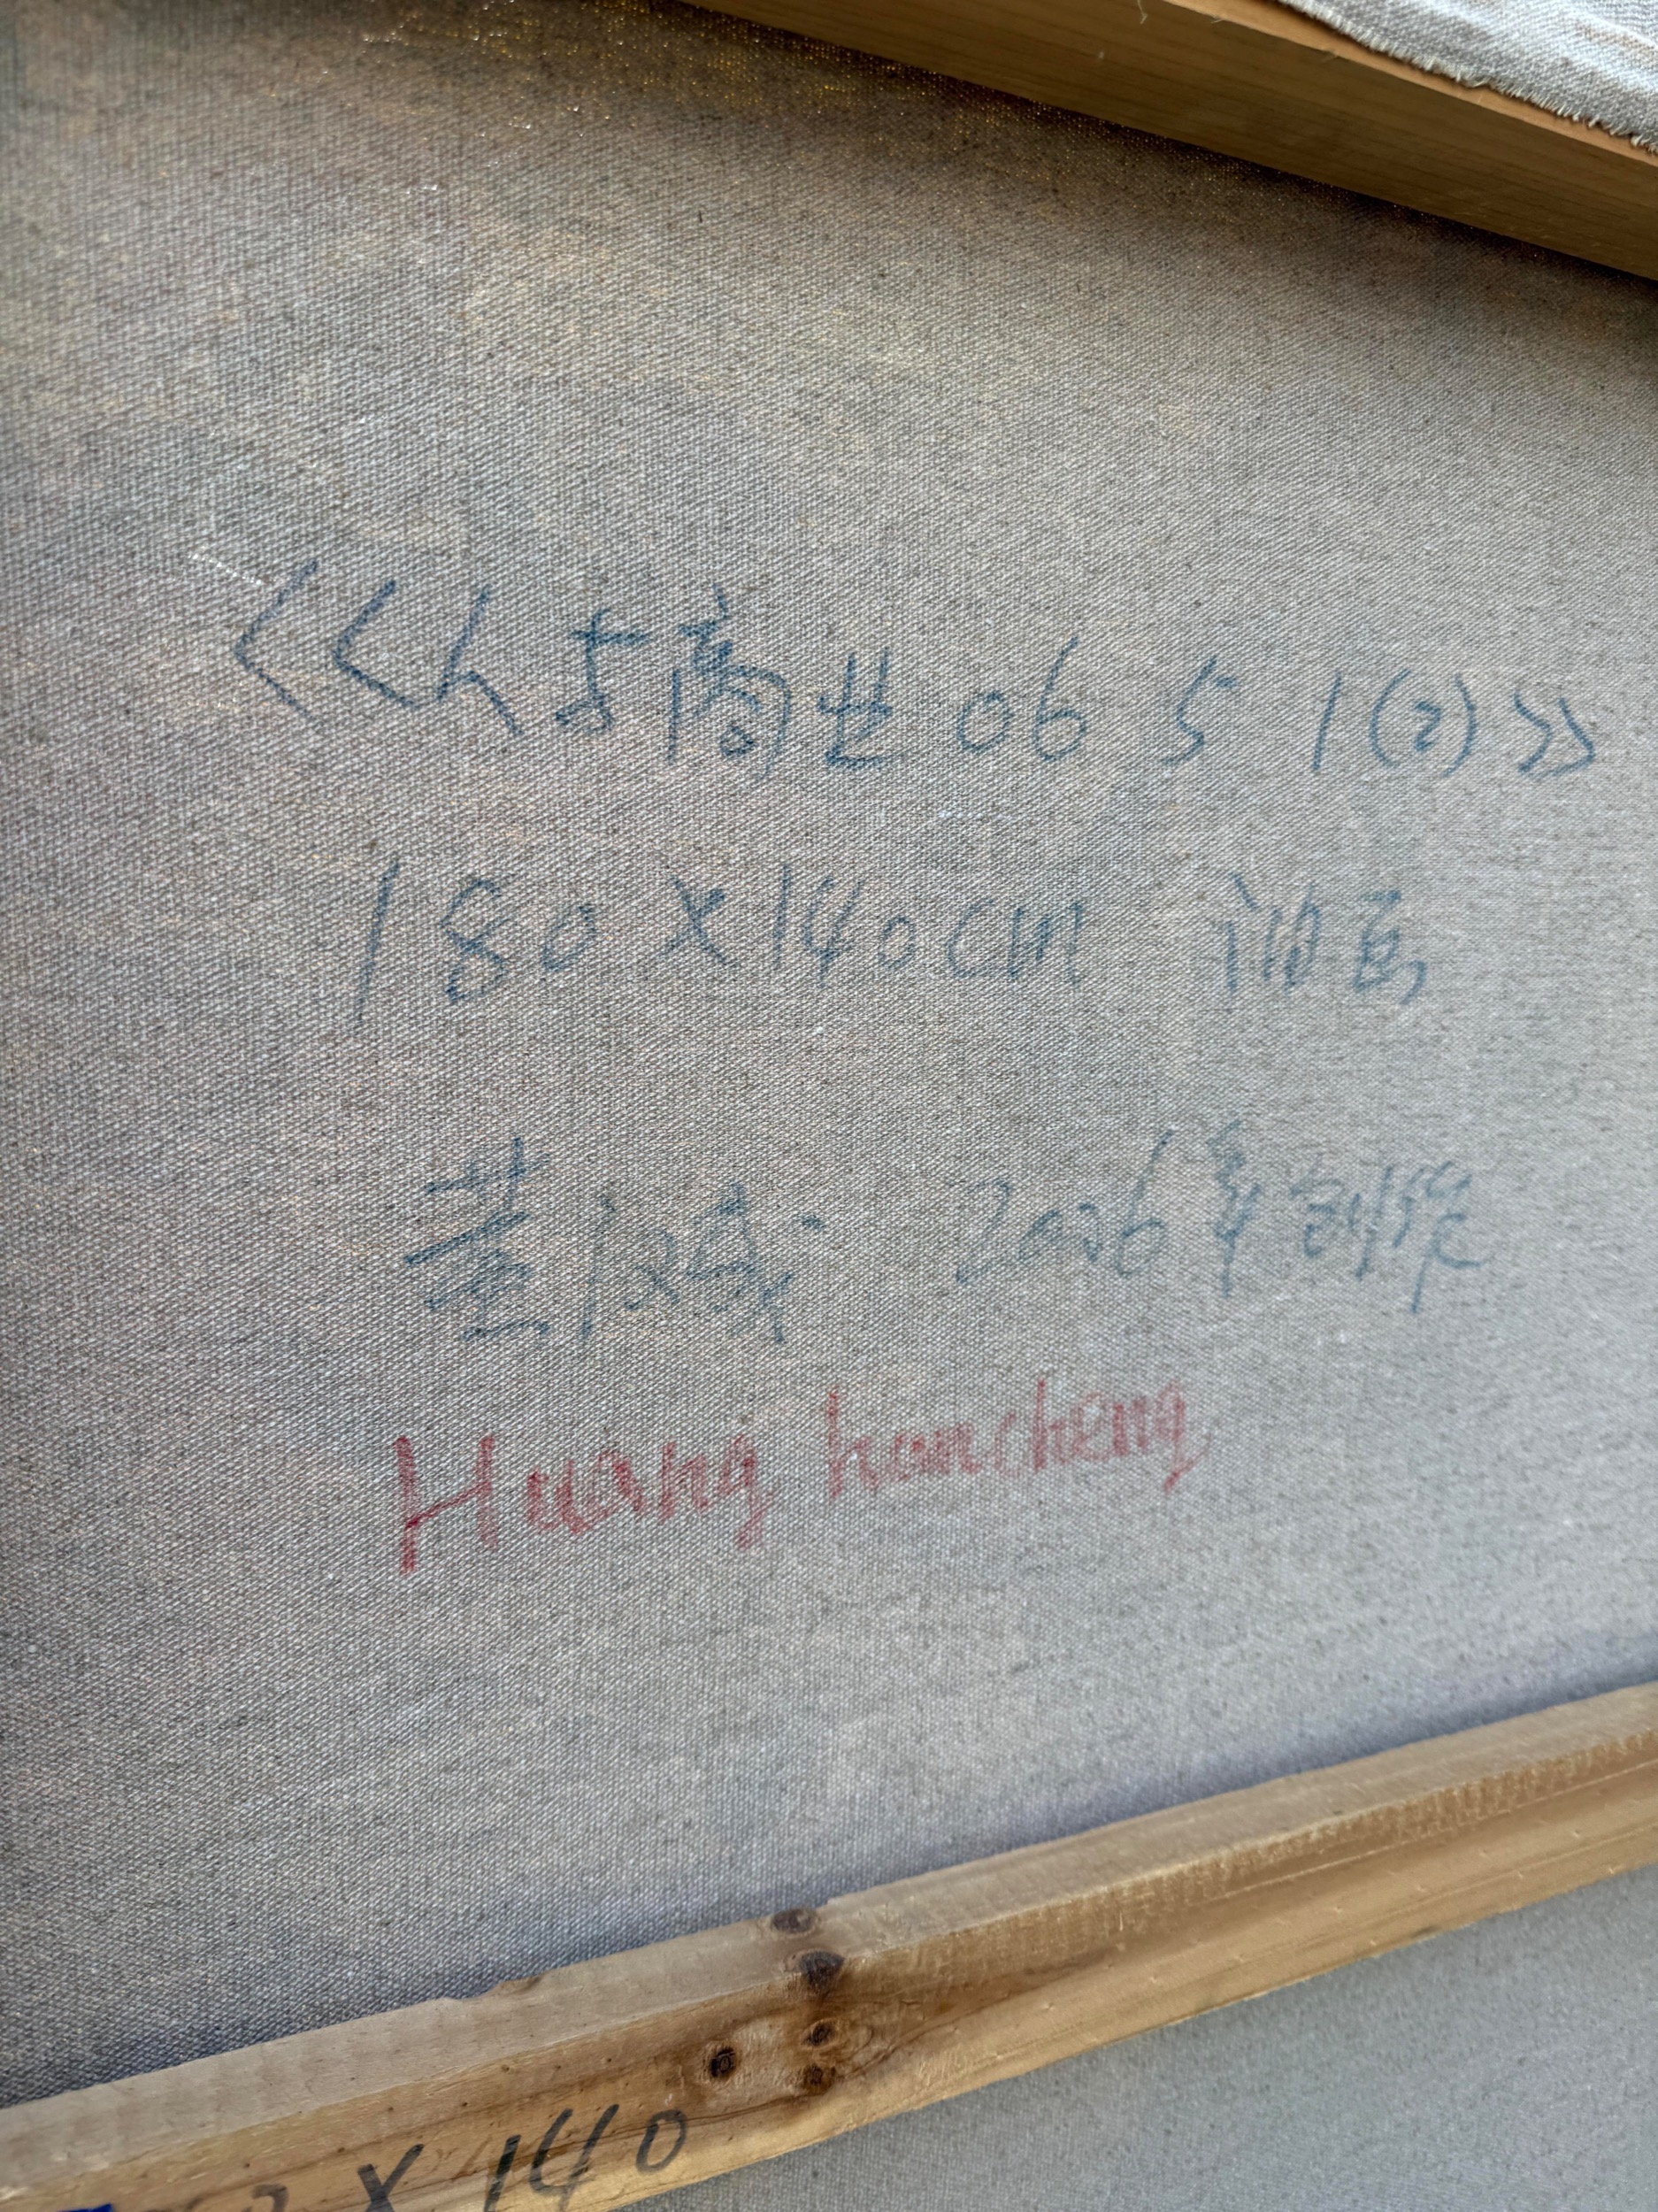 《人与商世 06 5 1(2)》
180×140cm 油画
黄汉成 2006年创作
Huang hancheng
×140